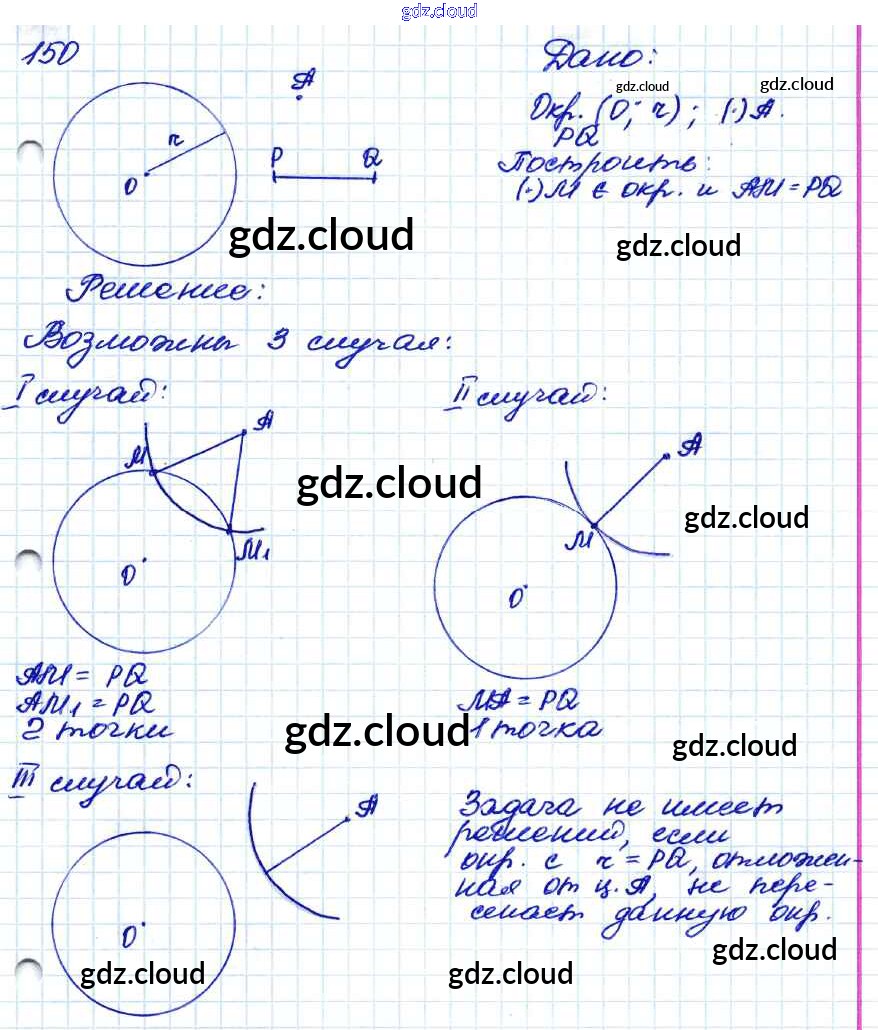 gdz.cloud
150
Дано:
A
gdz.cloud
gdz.cloud
Окр. (O; r); (·) A.
r
PQ
P Q
Построить:
O
(·) M ∈ окр. и AM = PQ
gdz.cloud
gdz.cloud
Решение:
Возможны 3 случая:
I случай:
II случай:
A
M
A
gdz.cloud
gdz.cloud
M₁
M
O
O
AM = PQ
AM₁ = PQ
2 точки
MA = PQ
1 точка
gdz.cloud
gdz.cloud
III случай:
A
O
Задача не имеет
решений, если
окр. с r = PQ, отложен-
ная от ц. A, не пере-
секает данную окр.
gdz.cloud
gdz.cloud
gdz.cloud